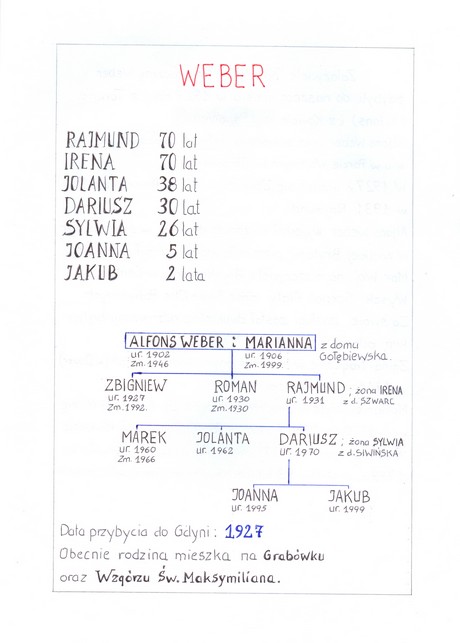 WEBER
RAJMUND 70 lat
IRENA 70 lat
JOLANTA 38 lat
DARIUSZ 30 lat
SYLWIA 26 lat
JOANNA 5 lat
JAKUB 2 lata
ALFONS WEBER i MARIANNA z domu
ur. 1902 ur. 1906 Gołębiewska.
Zm. 1946 Zm. 1999.
ZBIGNIEW ROMAN RAJMUND ; żona IRENA
ur. 1927 ur. 1930 ur. 1931 z d. SZWARC
Zm. 1992. Zm. 1930
MAREK JOLANTA DARIUSZ ; żona SYLWIA
ur. 1960 ur. 1962 ur. 1970 z d. SIWIŃSKA
Zm. 1966
JOANNA JAKUB
ur. 1995 ur. 1999
Data przybycia do Gdyni : 1927
Obecnie rodzina mieszka na Grabówku
oraz Wzgórzu Św. Maksymiliana.